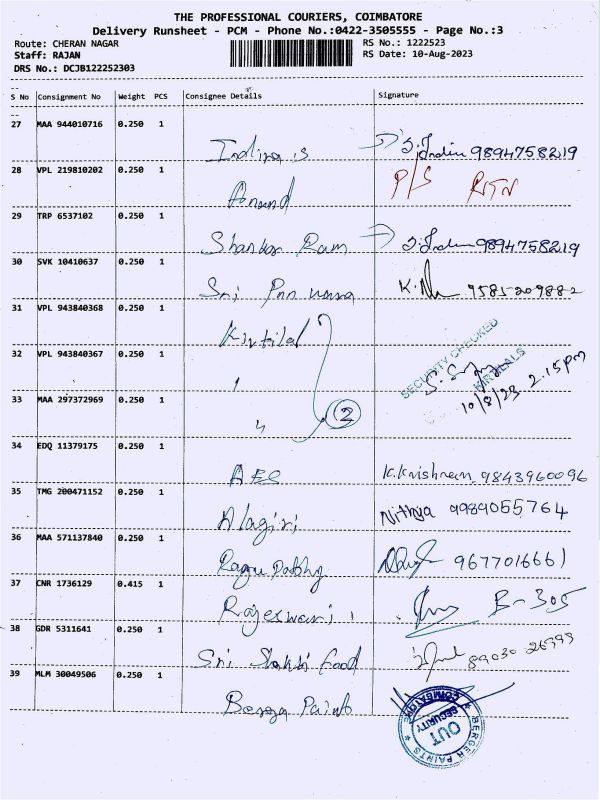 THE PROFESSIONAL COURIERS, COIMBATORE
Delivery Runsheet - PCM - Phone No.:0422-3505555 - Page No.:3
Route: CHERAN NAGAR RS No.: 1222523
Staff: RAJAN RS Date: 10-Aug-2023
DRS No.: DCJB122252303
S No Consignment No Weight PCS Consignee Details Signature
27 MAA 944010716 0.250 1
Indira S 9894758219
28 VPL 219810202 0.250 1
Anand P/S RTN
29 TRP 6537102 0.250 1
Shankar Ram 9894758219
30 SVK 10410637 0.250 1
Sri 9585209882
31 VPL 943840368 0.250 1
Kirtilal
SECURITY CHECKED
KIRTILALS
32 VPL 943840367 0.250 1
"
10/8/23 2.15pm
33 MAA 297372969 0.250 1
" 2
34 EDQ 11379175 0.250 1
AES K.Krishnan 9843960096
35 TMG 200471152 0.250 1
Alagiri Nithya 9989055764
36 MAA 571137840 0.250 1
9677016661
37 CNR 1736129 0.415 1
Rajeswari B-305
38 GDR 5311641 0.250 1
Sri Shakti Food
39 MLM 30049506 0.250 1
Berger Paints
COIMBATORE
SECURITY
OUT
BERGER PAINTS